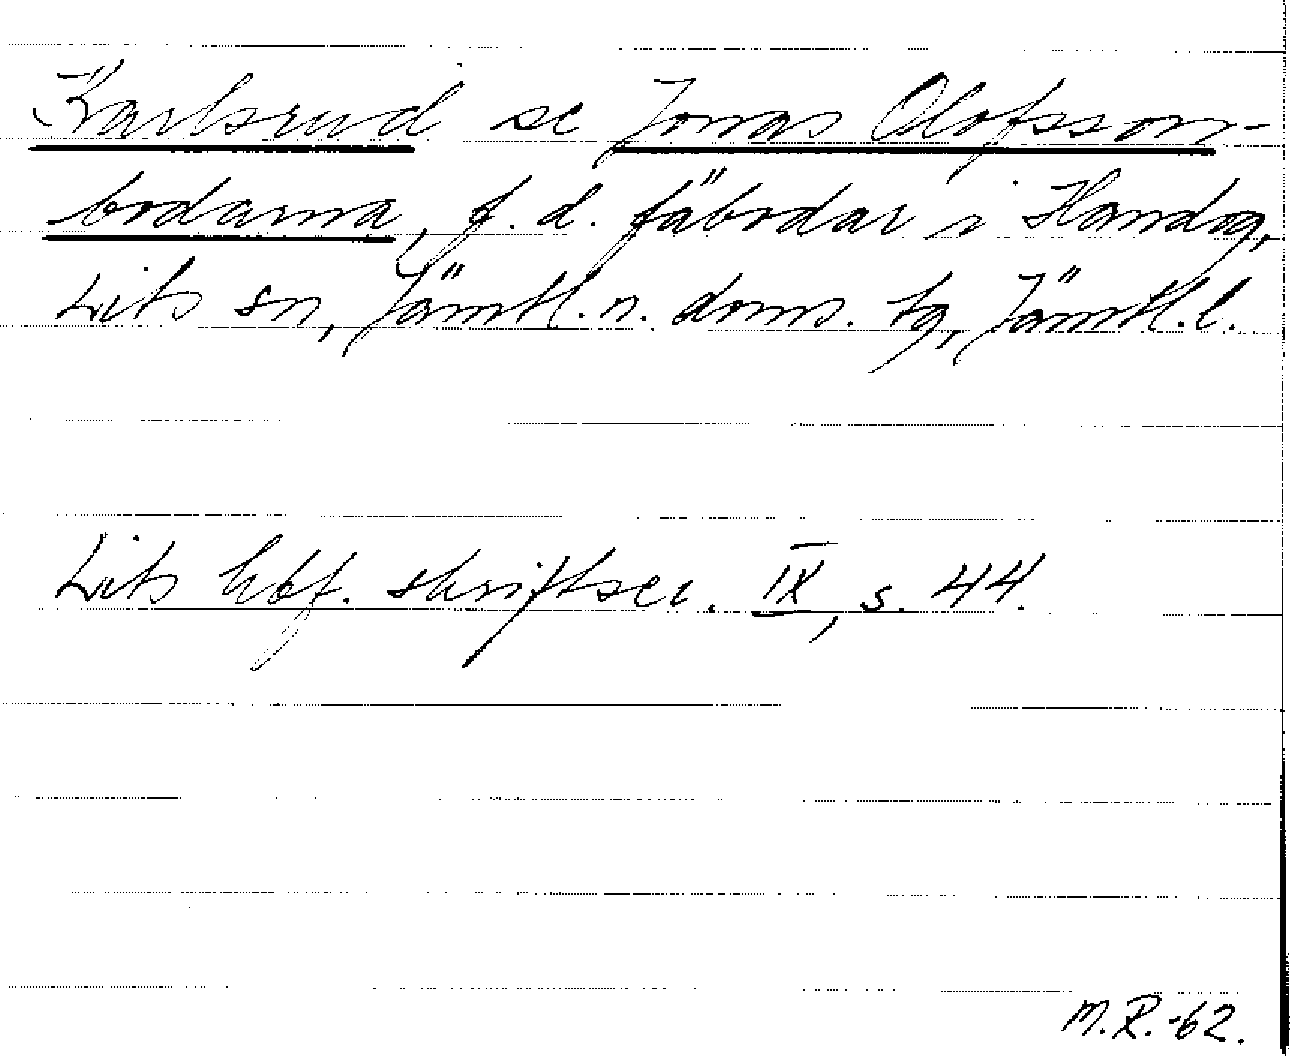 Karlsrud se Jonas Olofsson-
bodarna, f. d. fäbodar i Handog,
Lits sn, Jämtl. n. doms. tg, Jämtl. l.
Lits hbf. skriftser. IX, s. 44.
M.R.-62.